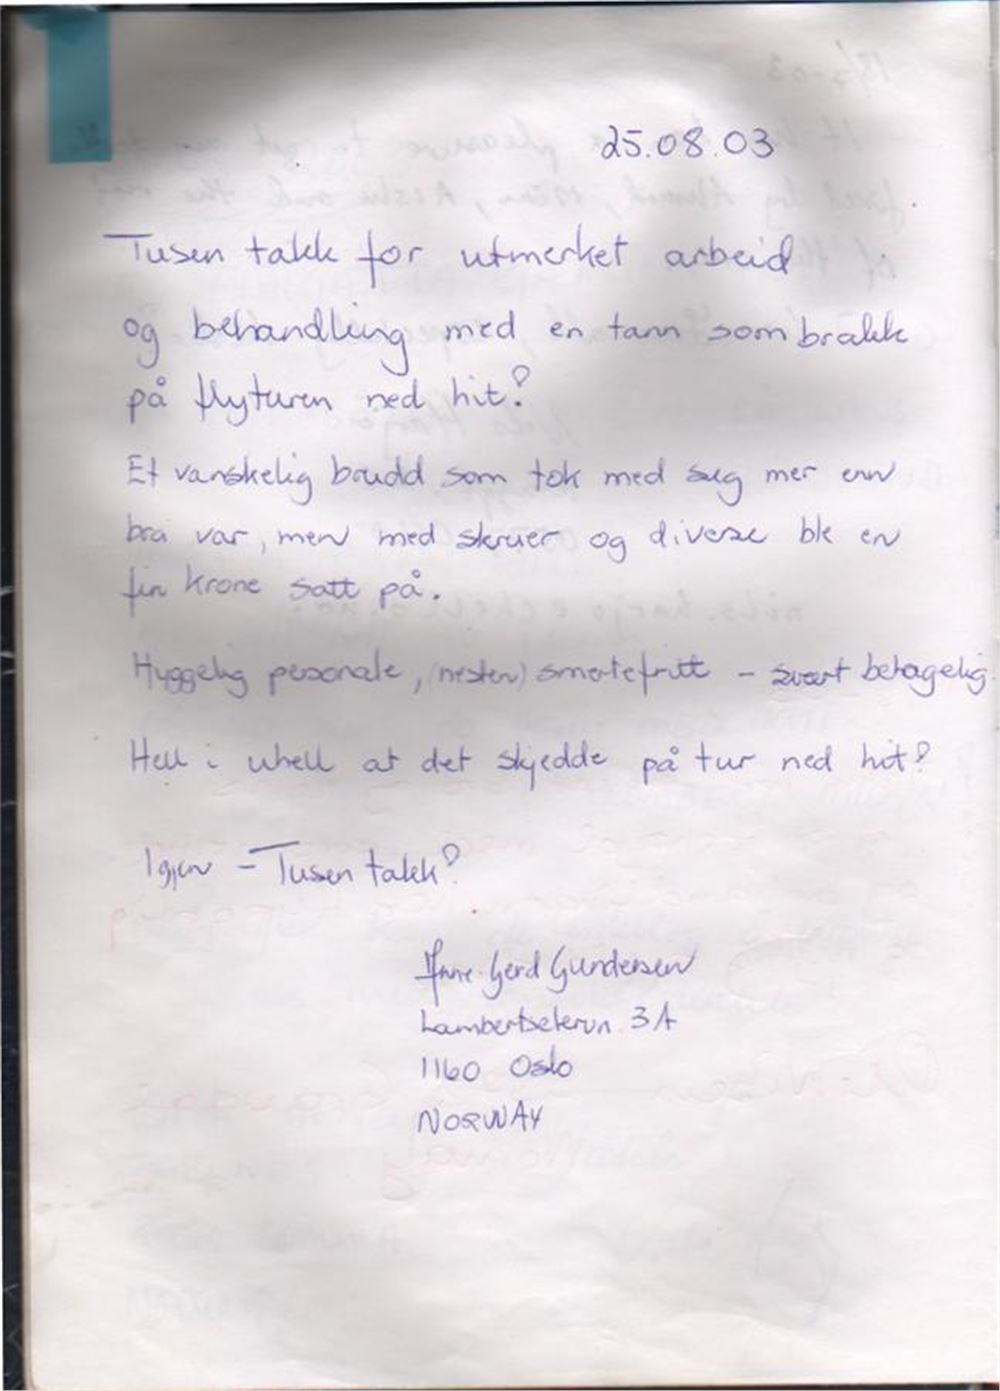 25.08.03
Tusen takk for utmerket arbeid
og behandling med en tann som brakk
på flyturen ned hit!
Et vanskelig brudd som tok med seg mer enn
bra var, men med skruer og diverse ble en
fin krone satt på.
Hyggelig personale, (nesten) smertefritt - svært behagelig.
Hell i uhell at det skjedde på tur ned hit!
Igjen - Tusen takk!
Anne-Gerd Gundersen
Lambertsetervn 3A
1160 Oslo
NORWAY